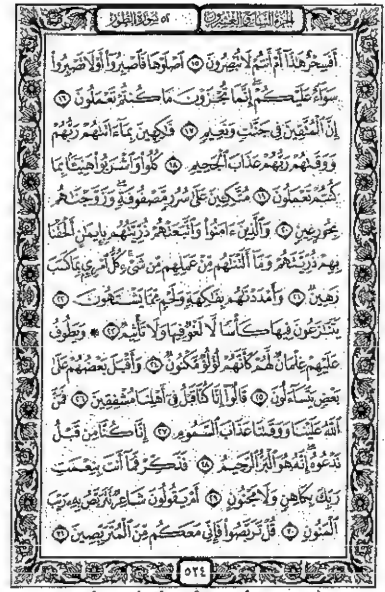 الجزء السابع والعشرون ٥٢ سورة الطور
أَفَسِحْرٌ هَٰذَا أَمْ أَنتُمْ لَا تُبْصِرُونَ ١٥ ٱصْلَوْهَا فَٱصْبِرُوٓا۟ أَوْ لَا تَصْبِرُوا۟
سَوَآءٌ عَلَيْكُمْ إِنَّمَا تُجْزَوْنَ مَا كُنتُمْ تَعْمَلُونَ ١٦
إِنَّ ٱلْمُتَّقِينَ فِى جَنَّٰتٍ وَنَعِيمٍ ١٧ فَٰكِهِينَ بِمَآ ءَاتَىٰهُمْ رَبُّهُمْ
وَوَقَىٰهُمْ رَبُّهُمْ عَذَابَ ٱلْجَحِيمِ ١٨ كُلُوا۟ وَٱشْرَبُوا۟ هَنِيٓـًٔۢا بِمَا
كُنتُمْ تَعْمَلُونَ ١٩ مُتَّكِـِٔينَ عَلَىٰ سُرُرٍ مَّصْفُوفَةٍ وَزَوَّجْنَٰهُم
بِحُورٍ عِينٍ ٢٠ وَٱلَّذِينَ ءَامَنُوا۟ وَٱتَّبَعَتْهُمْ ذُرِّيَّتُهُم بِإِيمَٰنٍ أَلْحَقْنَا
بِهِمْ ذُرِّيَّتَهُمْ وَمَآ أَلَتْنَٰهُم مِّنْ عَمَلِهِم مِّن شَىْءٍ كُلُّ ٱمْرِئٍۭ بِمَا كَسَبَ
رَهِينٌ ٢١ وَأَمْدَدْنَٰهُم بِفَٰكِهَةٍ وَلَحْمٍ مِّمَّا يَشْتَهُونَ ٢٢
يَتَنَٰزَعُونَ فِيهَا كَأْسًا لَّا لَغْوٌ فِيهَا وَلَا تَأْثِيمٌ ٢٣ * وَيَطُوفُ
عَلَيْهِمْ غِلْمَانٌ لَّهُمْ كَأَنَّهُمْ لُؤْلُؤٌ مَّكْنُونٌ ٢٤ وَأَقْبَلَ بَعْضُهُمْ عَلَىٰ
بَعْضٍ يَتَسَآءَلُونَ ٢٥ قَالُوٓا۟ إِنَّا كُنَّا قَبْلُ فِىٓ أَهْلِنَا مُشْفِقِينَ ٢٦ فَمَنَّ
ٱللَّهُ عَلَيْنَا وَوَقَىٰنَا عَذَابَ ٱلسَّمُومِ ٢٧ إِنَّا كُنَّا مِن قَبْلُ
نَدْعُوهُ إِنَّهُۥ هُوَ ٱلْبَرُّ ٱلرَّحِيمُ ٢٨ فَذَكِّرْ فَمَآ أَنتَ بِنِعْمَتِ
رَبِّكَ بِكَاهِنٍ وَلَا مَجْنُونٍ ٢٩ أَمْ يَقُولُونَ شَاعِرٌ نَّتَرَبَّصُ بِهِۦ رَيْبَ
ٱلْمَنُونِ ٣٠ قُلْ تَرَبَّصُوا۟ فَإِنِّى مَعَكُم مِّنَ ٱلْمُتَرَبِّصِينَ ٣١
٥٢٤